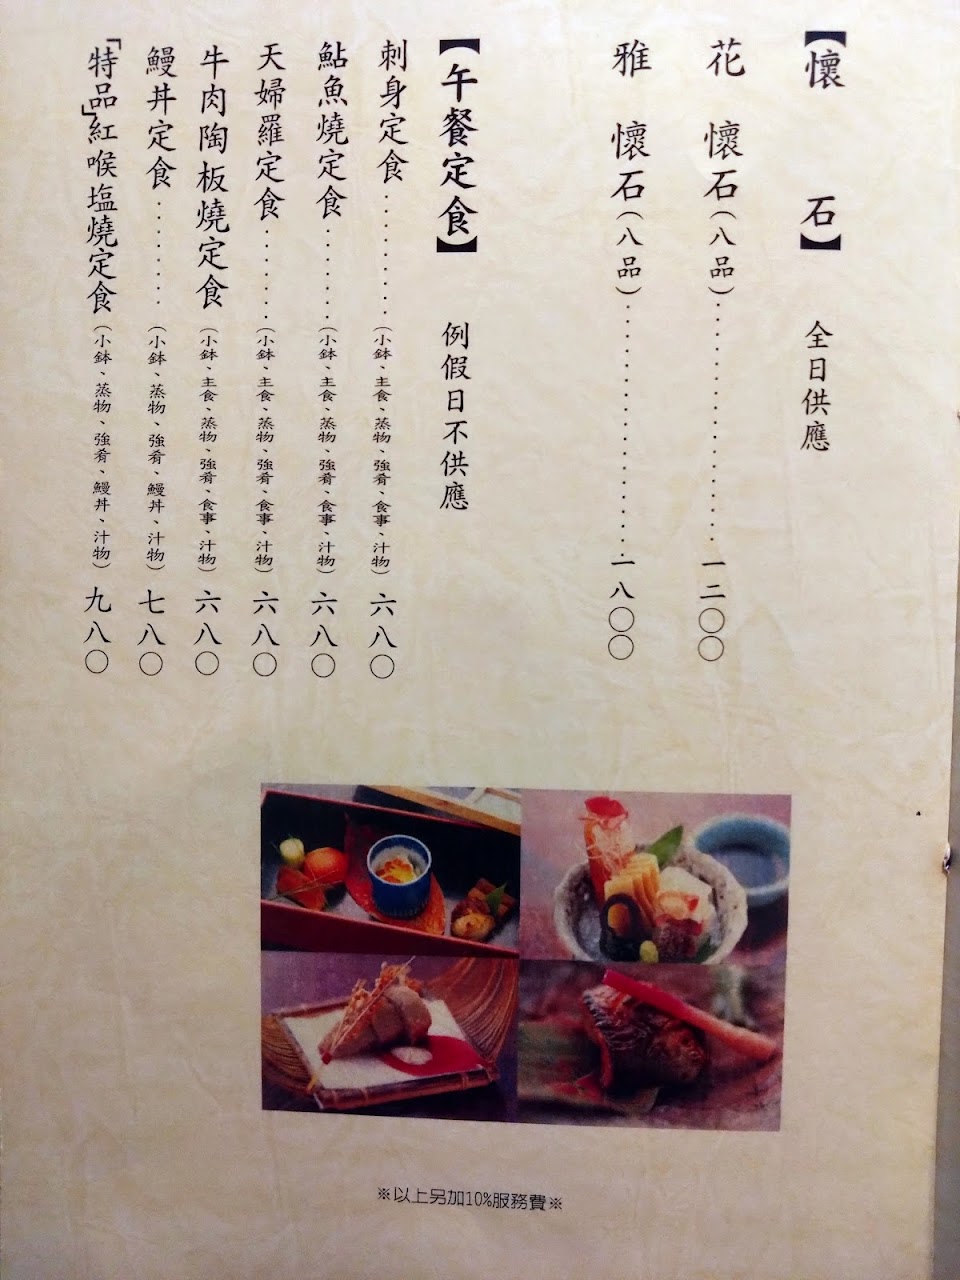 【懷石】 全日供應
花 懷石(八品)····················一二〇〇
雅 懷石(八品)····················一八〇〇
【午餐定食】 例假日不供應
刺身定食·········(小鉢、主食、蒸物、強肴、食事、汁物)六八〇
鮎魚燒定食·······(小鉢、主食、蒸物、強肴、食事、汁物)六八〇
天婦羅定食·······(小鉢、主食、蒸物、強肴、食事、汁物)六八〇
牛肉陶板燒定食(小鉢、主食、蒸物、強肴、食事、汁物)六八〇
鰻丼定食········(小鉢、蒸物、強肴、鰻丼、汁物)七八〇
「特品」紅喉塩燒定食(小鉢、蒸物、強肴、鰻丼、汁物)九八〇
※以上另加10%服務費※